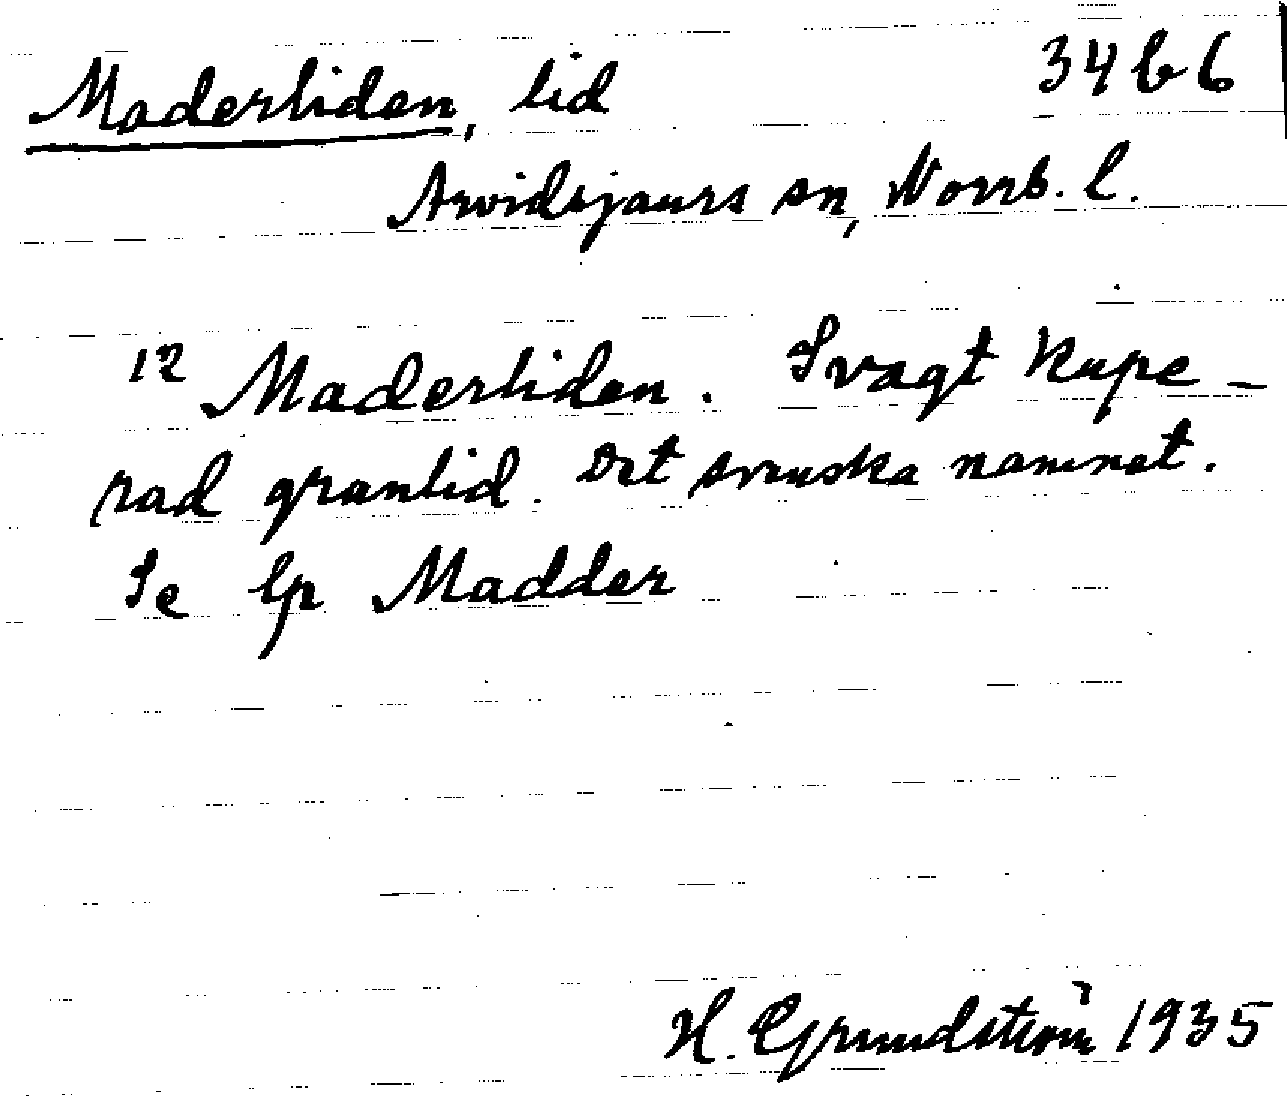 Maderliden, lid 34 b 6
Arvidsjaurs sn, Norrb. l.
12 Maderliden. Svagt kupe-
rad granlid. Det svenska namnet.
Se lp Madder
H. Grundström 1935